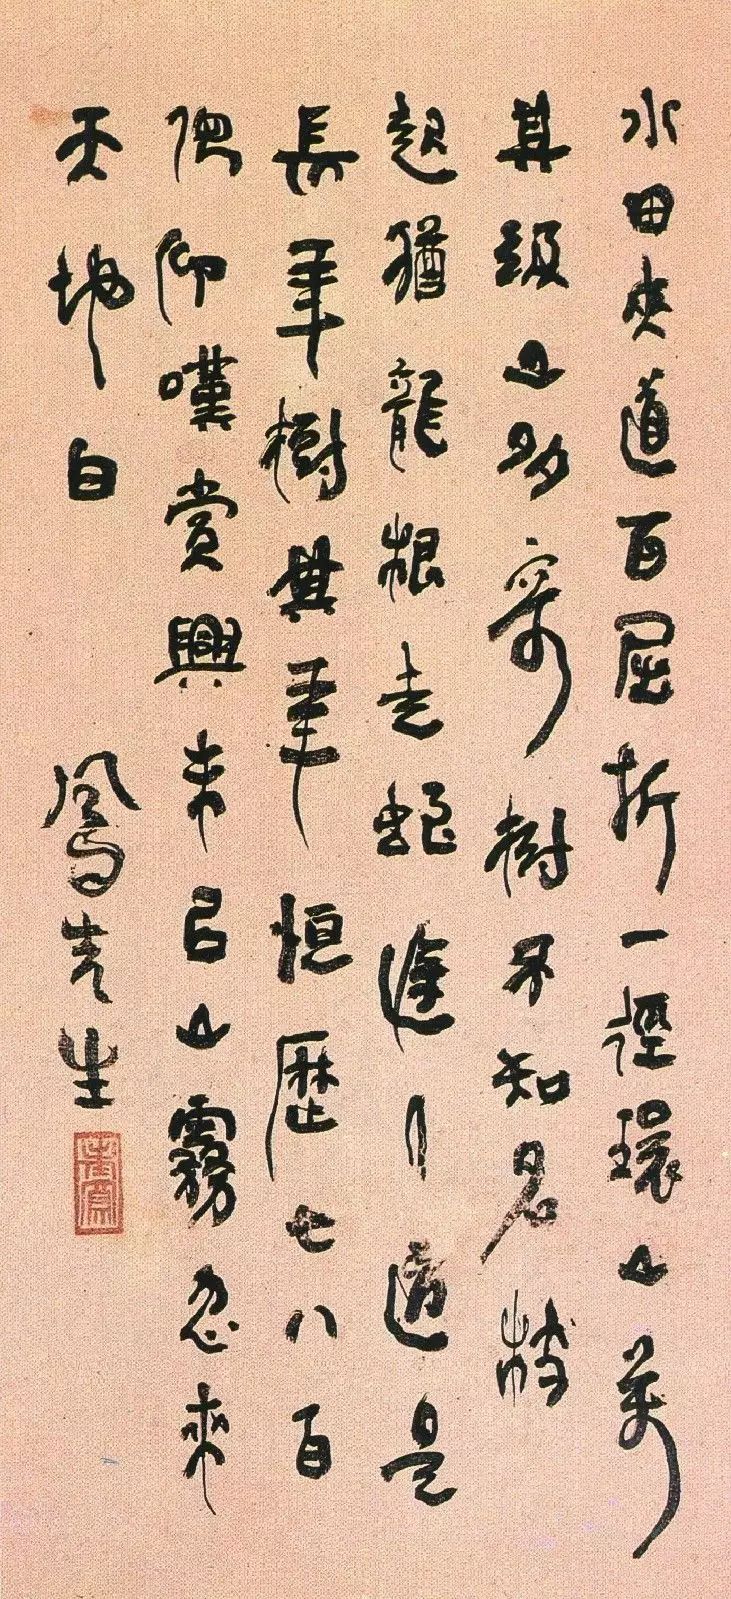 水田夾道百屈折一徑環山萬
其級山多奇樹不知名枝
起猶龍根走蛇逢人道是
長年樹其年恒歷七八百
俯仰嘆賞興未已山霧忽來
天地白
鳳先生